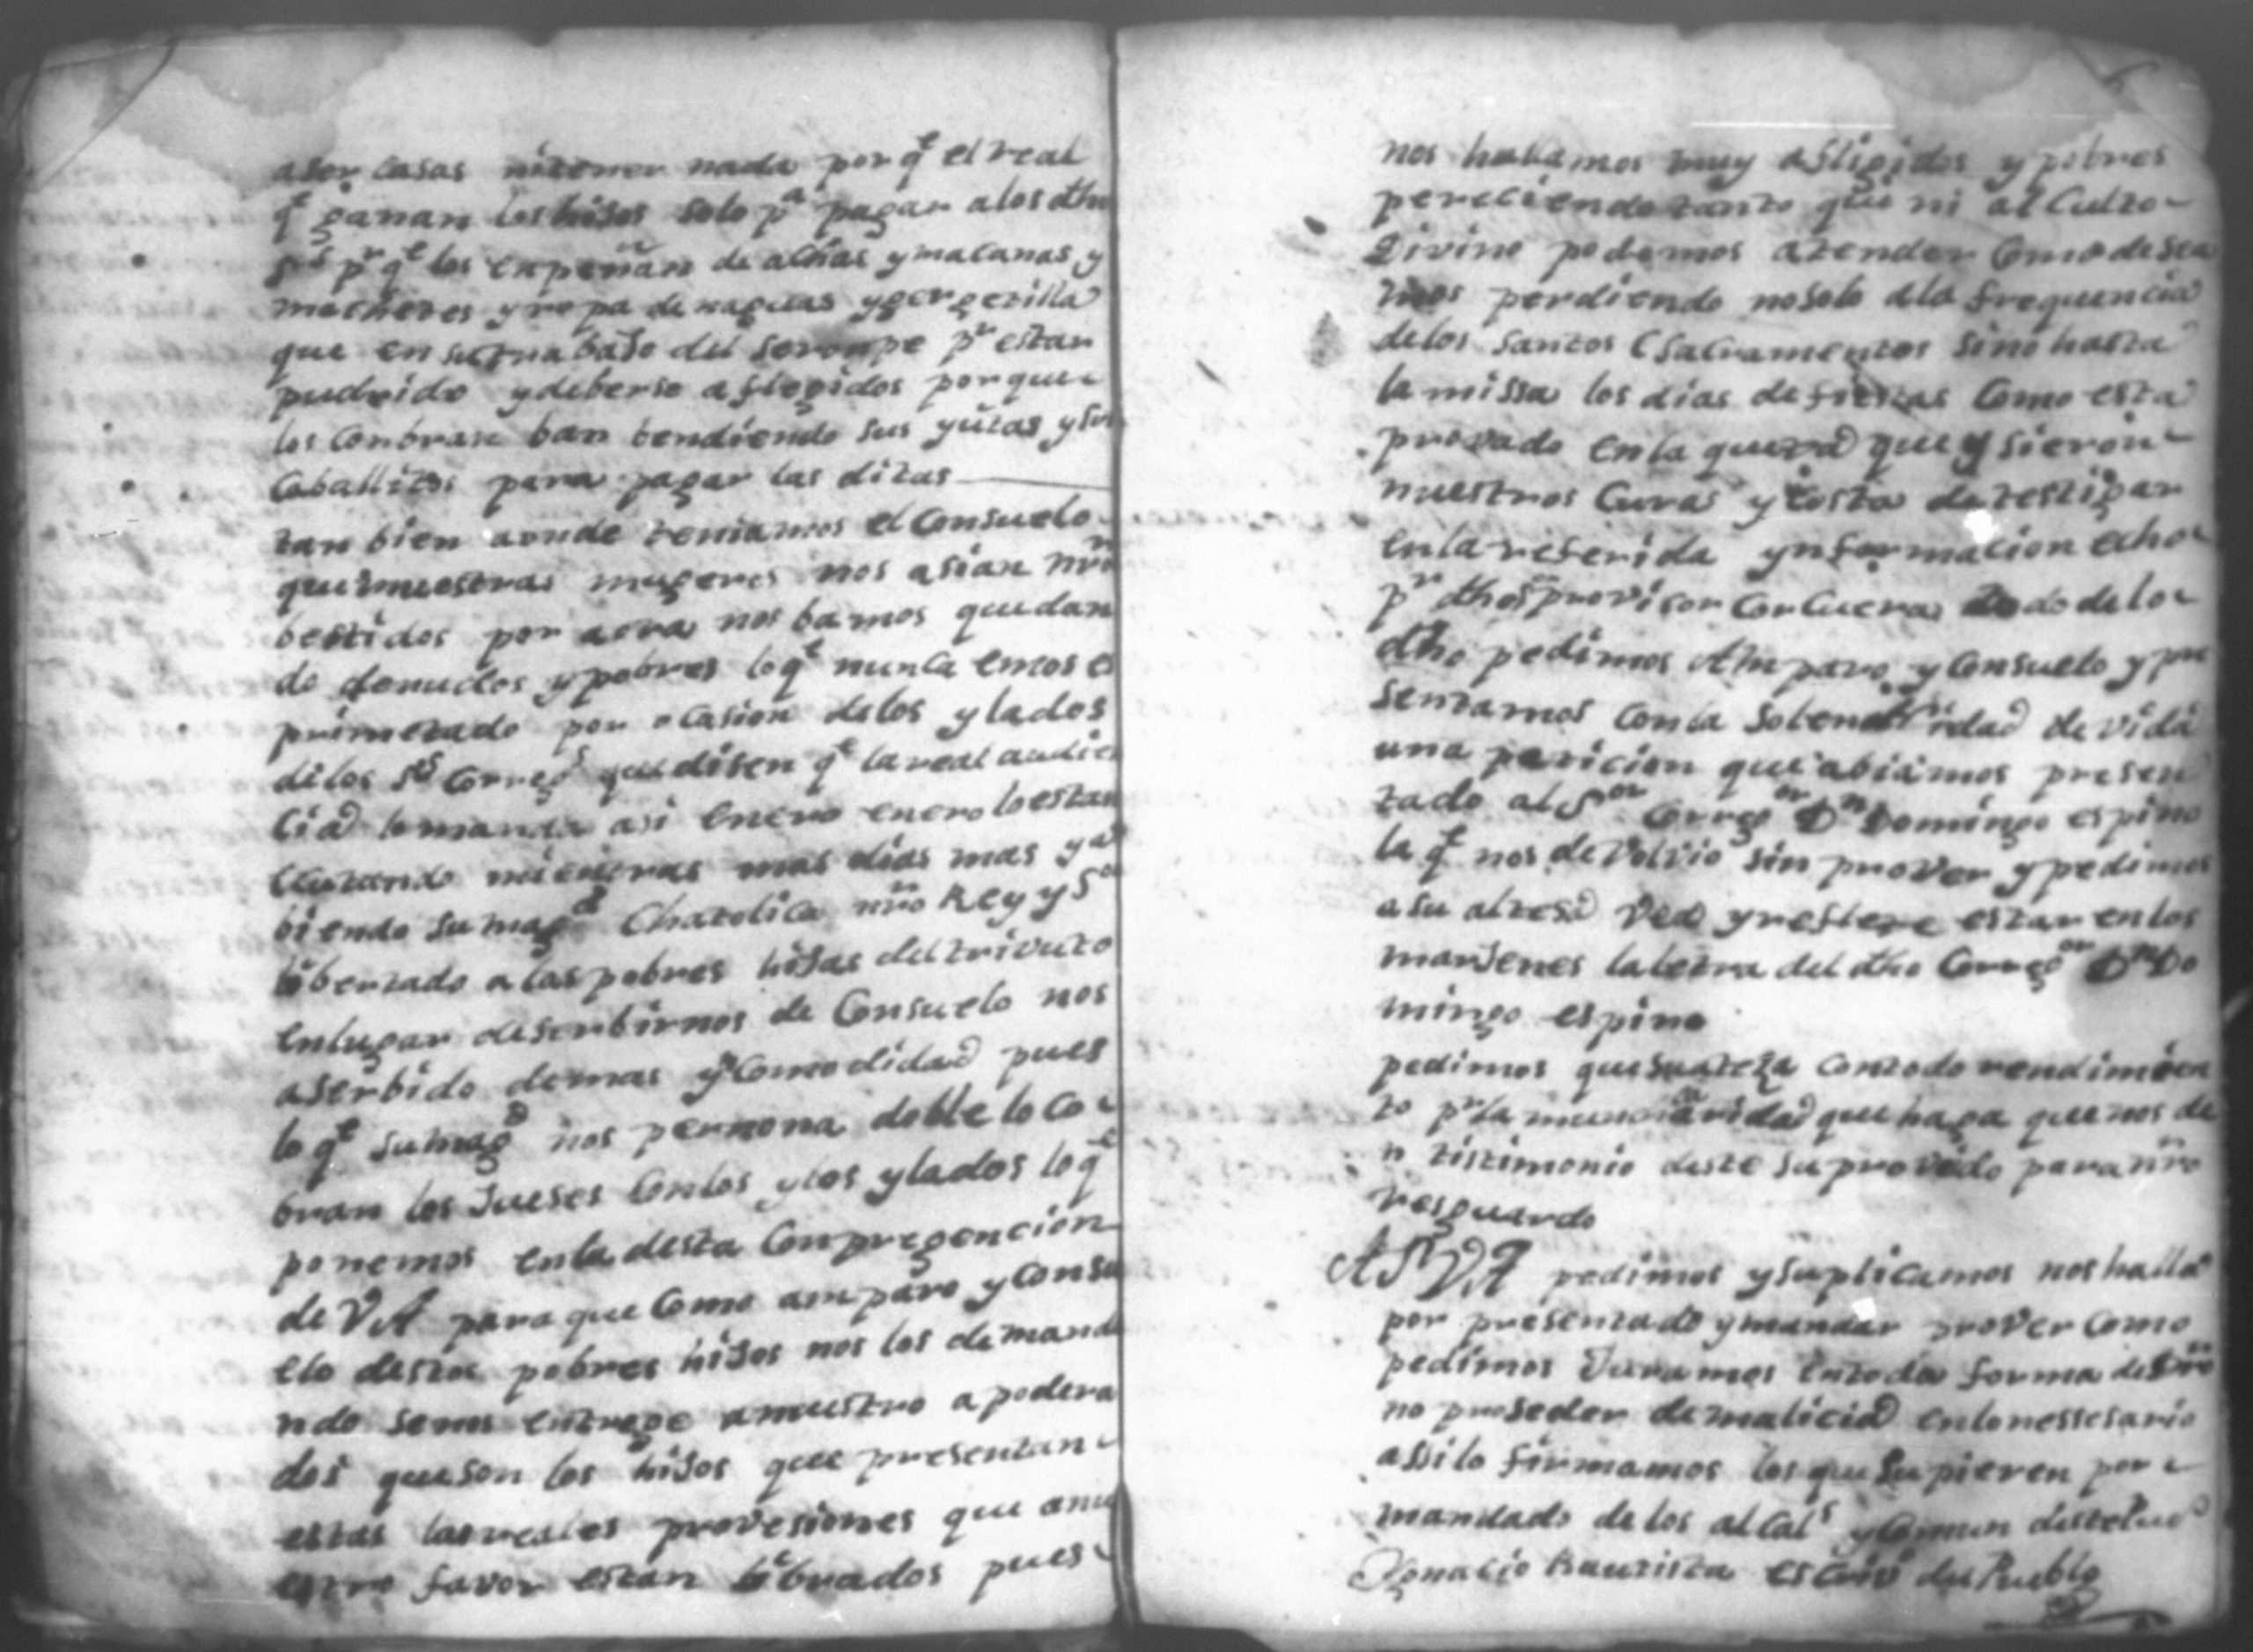 aser casas nitener nada por q^e el real
q^e ganan los hijos solo p^a pagar alos dho
s^res p^r q^e los enpeñan de achas y macanas y
machetes y ropa de naguas y gergetilla
que en su trabajo del serompe p^r estar
pudrido y deberse aflegidos porque
los conbran ban bendiendo sus yutas y sus
caballitos para pagar las ditas
tan bien aonde teniamos el Consuelo
que nuestras mugeres nos asian nr̃o
bestidos por aora nos bamos quedan
do denudos y pobres lo q^e nunca emos es
primetado por ocasion delos ylados
delos S^es Correg^s que disen q^e la real audien
cia lo manda asi enero enero lo estan
mientras mas dias mas ya
biendo su mag^d Chatolica nr̃o Rey y S^or
libertado a las pobres hijas del trivuto
en lugar deserbirnos de Consuelo nos
a serbido demas yncomodidad pues
lo q^e su mag^d nos perxona doble lo co
bran los Jueses con los ylos ylados lo q^e
ponemos en la desta Conpregencion
de V A para que Como amparo y Consu
elo destos pobres hijos nos los de manda
ndo senos entrege anuestro apodera
dos que son los hijos que presentan
estas las reales provesiones que anu
estro favor estan librados pues
nos hallamos muy afligidos y pobres
pereciendo tanto que ni al Culto
Divino podemos atender Como desea
mos perdiendo no solo dela frequencia
delos Santos Sacramentos sino hasta
la missa los dias de fiestas Como esta
provado en la quexa que ysieron
nuestros Curas y costa de testigar
en la referida ynformacion echo
p^r dho s^r provisor Corcuera todo de lo
dho pedimos Amparo y Consuelo y pre
sentamos con la solenidad devida
una peticion que abiamos presen
tado al S^or Correg^or D^n Domingo espino
la q^e nos devolvio sin prover y pedimos
a su altesa vea y refiere estar en los
marjenes la letra del dho Correg^or D^n Do
mingo espino
pedimos que su alteza con todo rendimien
to p^r la que haga que nos de
n tistimonio deste su provedo para nr̃o
resguardo
A S V A pedimos y suplicamos nos halla
por presentado y mandar prover como
pedimos Juramos en toda forma de dr̃o
no proseder de malicia en lo nessesario
assi lo firmamos los que supieren por
mandado de los alcal^s y Comun deste Pue^o
Ygnacio Bautista escriv^o del Pueblo